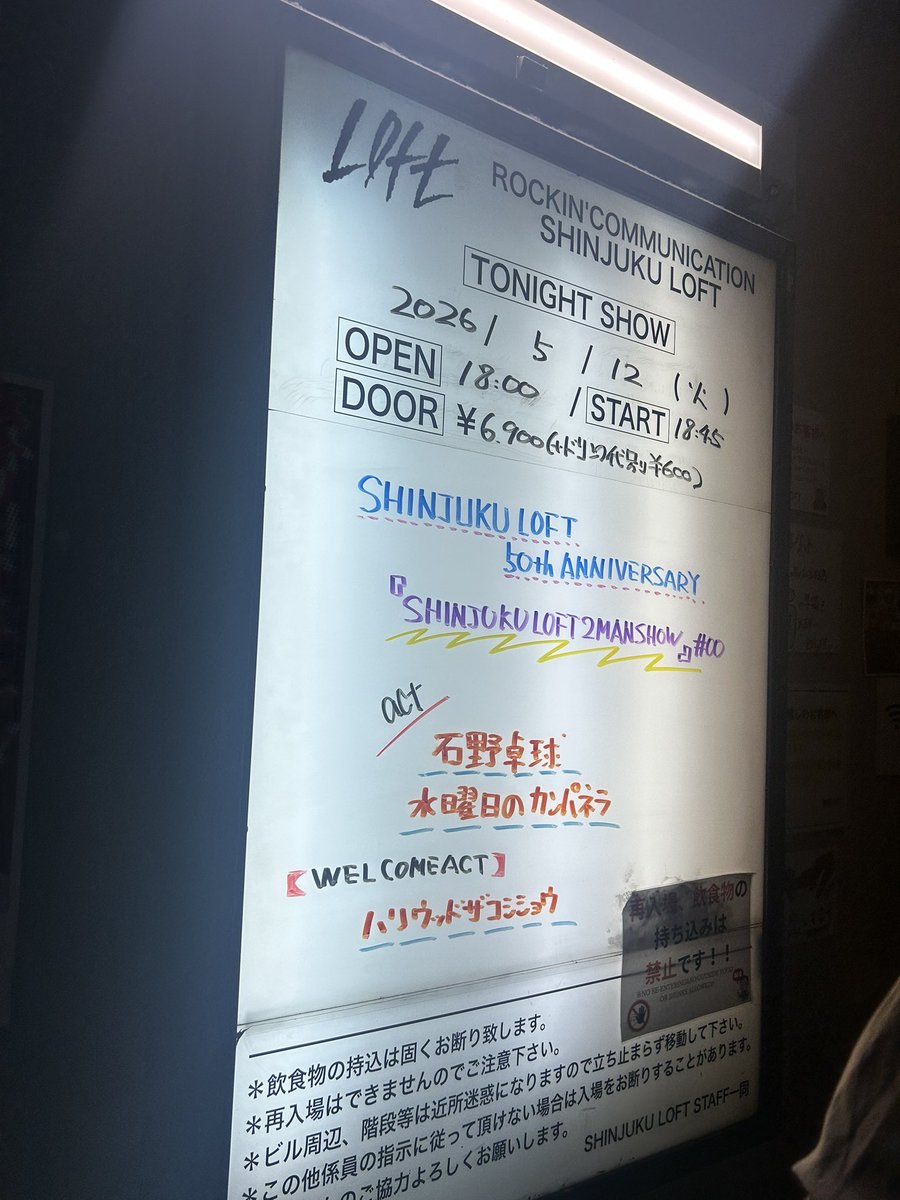 Loft
ROCKIN'COMMUNICATION
SHINJUKU LOFT
TONIGHT SHOW
2026 / 5 / 12 (火)
OPEN 18:00 / START 18:45
DOOR ¥6.900(+ドリンク代別り¥600)
SHINJUKU LOFT
50th ANNIVERSARY
『SHINJUKU LOFT 2MANSHOW』#00
act
石野卓球
水曜日のカンパネラ
【WELCOMEACT】
ハリウッドザコシショウ
再入場、飲食物の
持ち込みは
禁止です！！
※NO RE-ENTERING/NO OUTSIDE FOOD
OR DRINKS ALLOWED!!
＊飲食物の持込は固くお断り致します。
＊再入場はできませんのでご注意下さい。
＊ビル周辺、階段等は近所迷惑になりますので立ち止まらず移動して下さい。
＊この他係員の指示に従って頂けない場合は入場をお断りすることがあります。
のご協力よろしくお願いします。
SHINJUKU LOFT STAFF一同